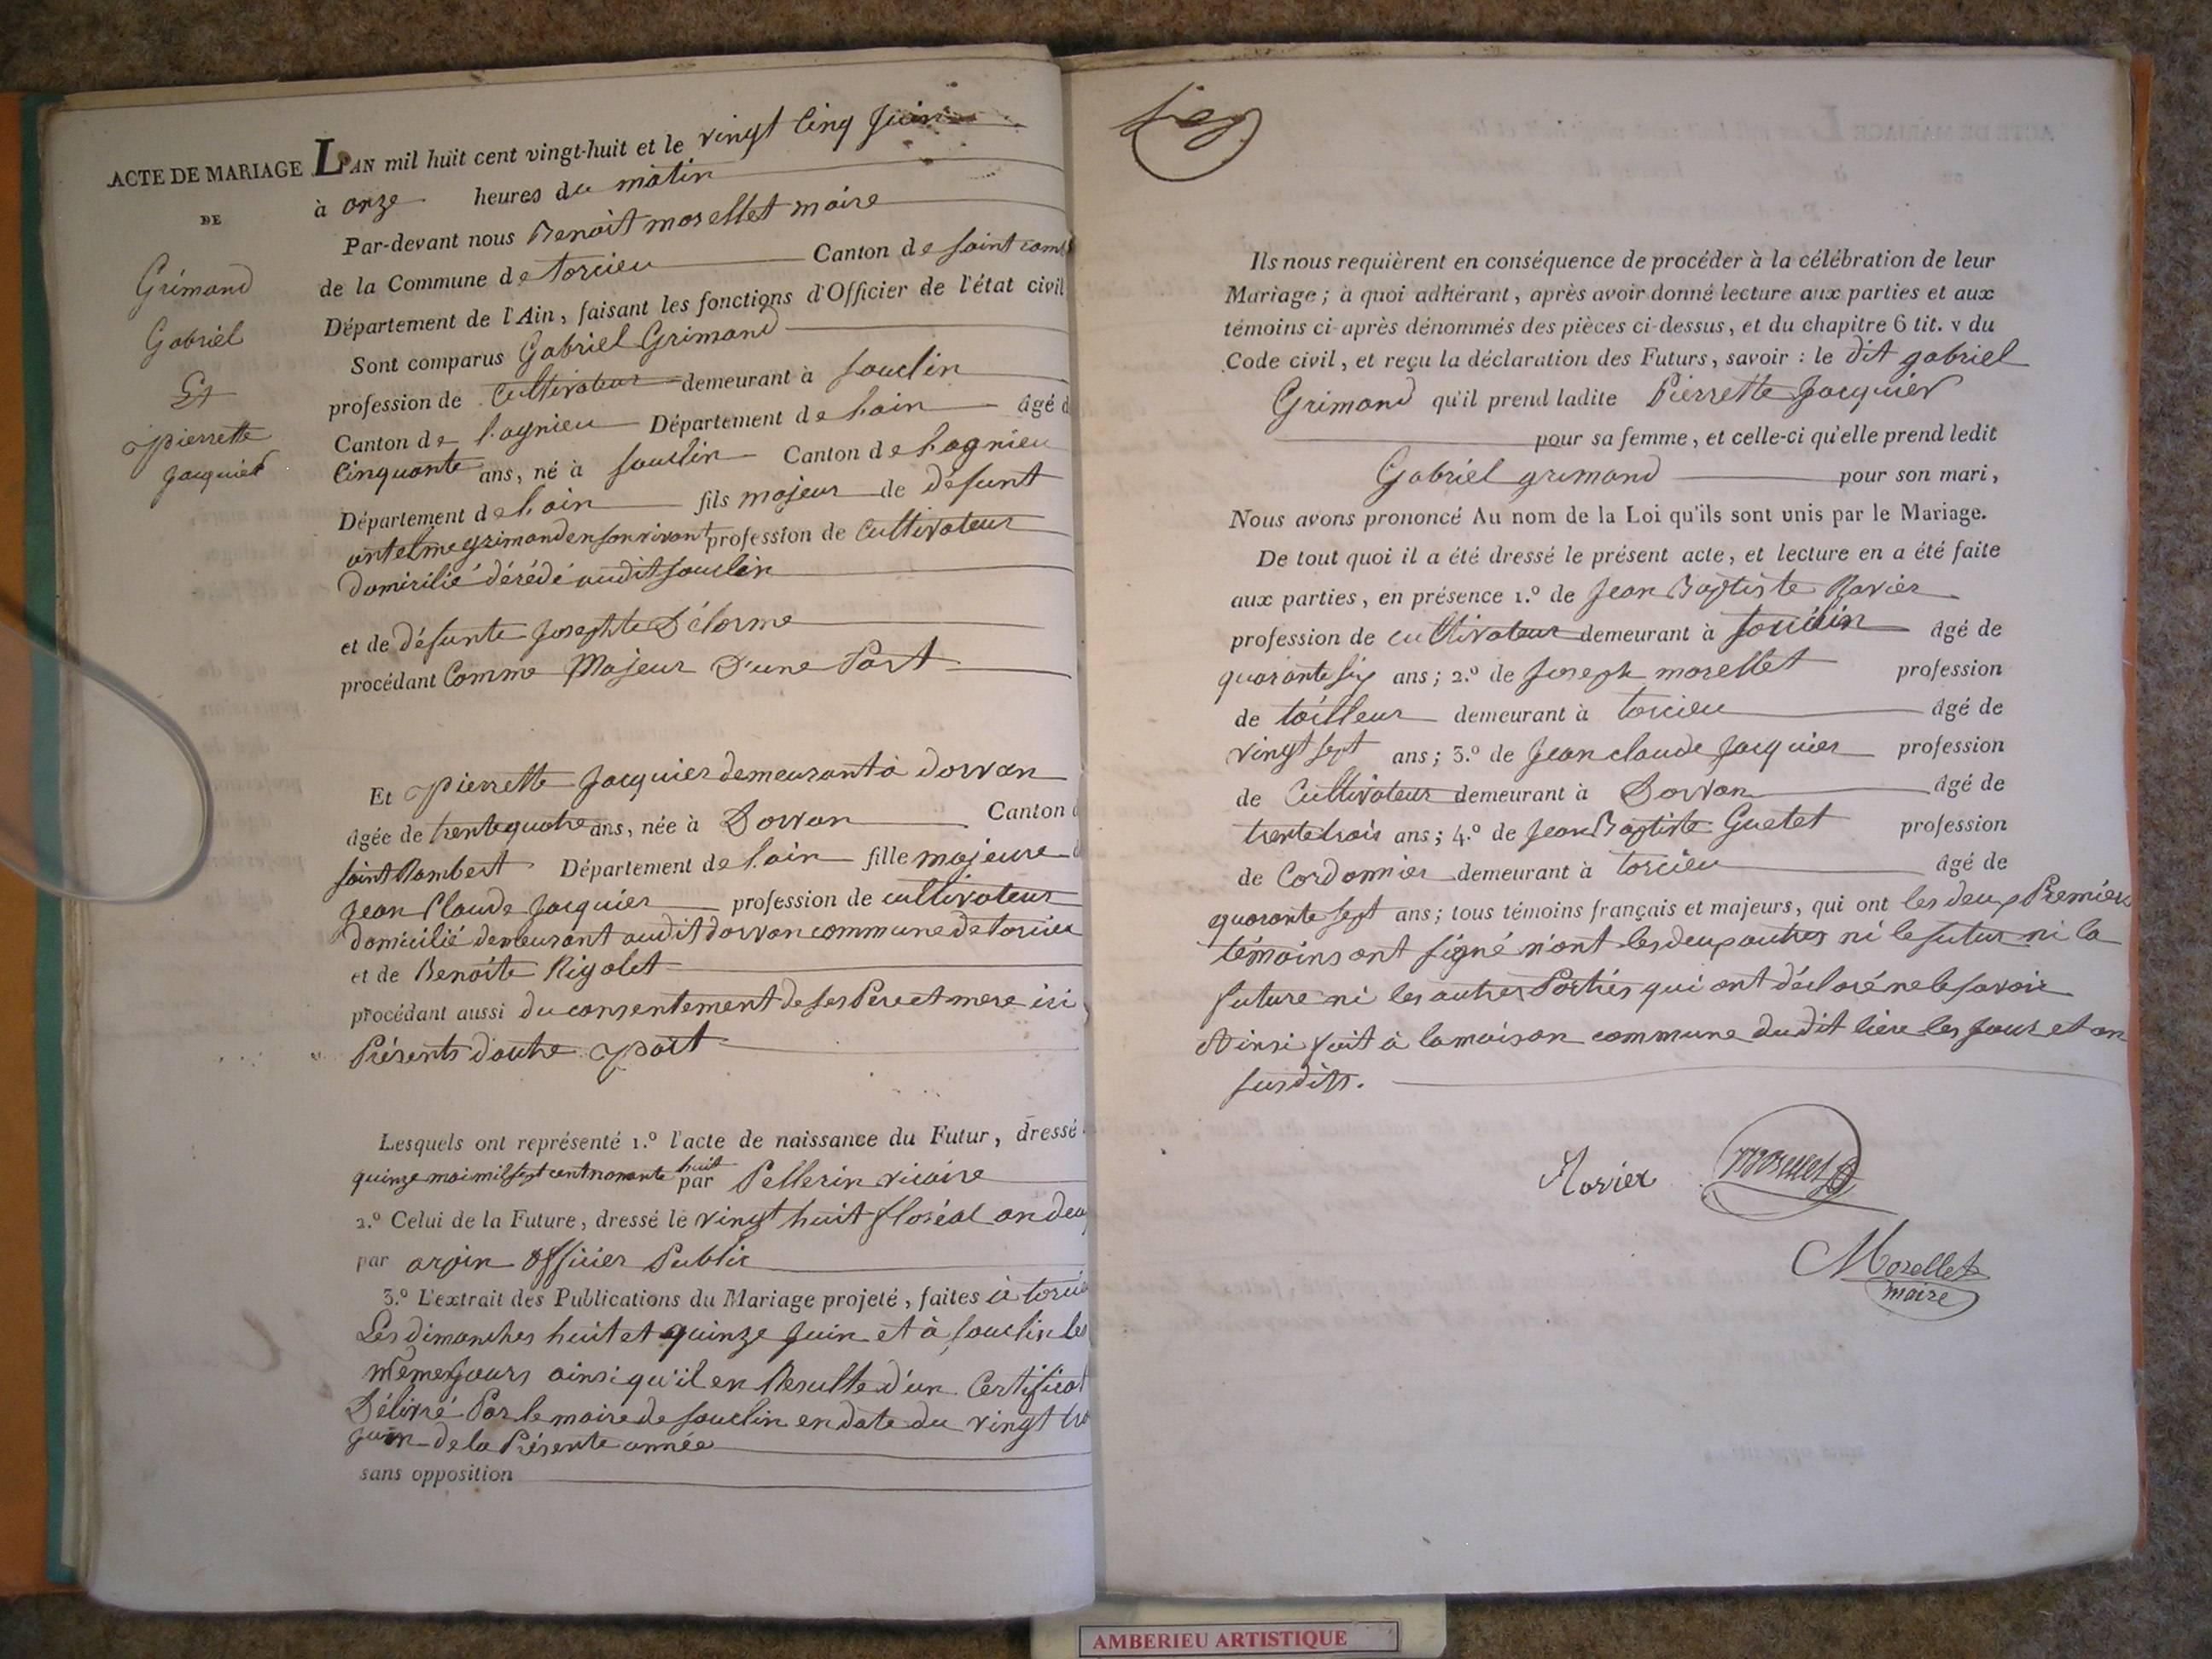 ACTE DE MARIAGE
DE
Grimand
Gabriel
Et
pierrette
Jacquier
L'AN mil huit cent vingt-huit et le vingt cinq juin
à onze heures du matin
Par-devant nous Benoit morellet maire
de la Commune de torcieu Canton de saint
Département de l'Ain, faisant les fonctions d'Officier de l'état civil
Sont comparus Gabriel Grimand
profession de Cultivateur demeurant à souclin
Canton de lagnieu Département de l'ain âgé
Cinquante ans, né à souclin Canton de Lagnieu
Département de l'ain fils majeur de défunt
antelme grimand en son vivant profession de Cultivateur
domicilié décédé audit souclin
et de défunte Josephte Délorme
procédant Comme Majeur D'une Part
Et pierrette Jacquier demeurant à dorvan
âgée de trente quatre ans, née à Dorvan Canton
saint Rambert Département de l'ain fille majeure
Jean Claude Jacquier profession de cultivateur
domicilié demeurant audit dorvan commune de torcieu
et de Benoite Rigolet
procédant aussi du consentement de ses Pere et mere ici
Présents d'autre part
Lesquels ont représenté 1.º l'acte de naissance du Futur, dressé
quinze mai mil sept cent nonante huit par Pellerin vicaire
2.º Celui de la Future, dressé le vingt huit floréal an deux
par officier Public
3.º L'extrait des Publications du Mariage projeté, faites à torcieu
Les dimanches huit et quinze juin et à souclin les
mêmes jours ainsi qu'il en Resulte d'un Certificat
Délivré Par le maire de souclin en date du vingt
juin de la Présente année
sans opposition
Ils nous requièrent en conséquence de procéder à la célébration de leur
Mariage; à quoi adhérant, après avoir donné lecture aux parties et aux
témoins ci-après dénommés des pièces ci-dessus, et du chapitre 6 tit. v du
Code civil, et reçu la déclaration des Futurs, savoir : le dit gabriel
Grimand qu'il prend ladite Pierrette Jacquier
pour sa femme, et celle-ci qu'elle prend ledit
Gabriel grimand pour son mari,
Nous avons prononcé Au nom de la Loi qu'ils sont unis par le Mariage.
De tout quoi il a été dressé le présent acte, et lecture en a été faite
aux parties, en présence 1.º de Jean Baptiste Ravier
profession de cultivateur demeurant à souclin âgé de
quarante six ans; 2.º de Joseph morellet profession
de tailleur demeurant à torcieu âgé de
vingt sept ans; 3.º de Jean claude Jacquier profession
de Cultivateur demeurant à Dorvan âgé de
trente trois ans; 4.º de Jean Baptiste Guetet profession
de Cordonnier demeurant à torcieu âgé de
quarante sept ans; tous témoins français et majeurs, qui ont les deux Premiers
témoins ont signé n'ont les deux autres ni le futur ni la
future ni les autres Parties qui ont déclaré ne le savoir
Ainsi fait à la maison commune dudit lieu les jour et an
susdits.
Ravier morellet
Morellet
maire
AMBERIEU ARTISTIQUE